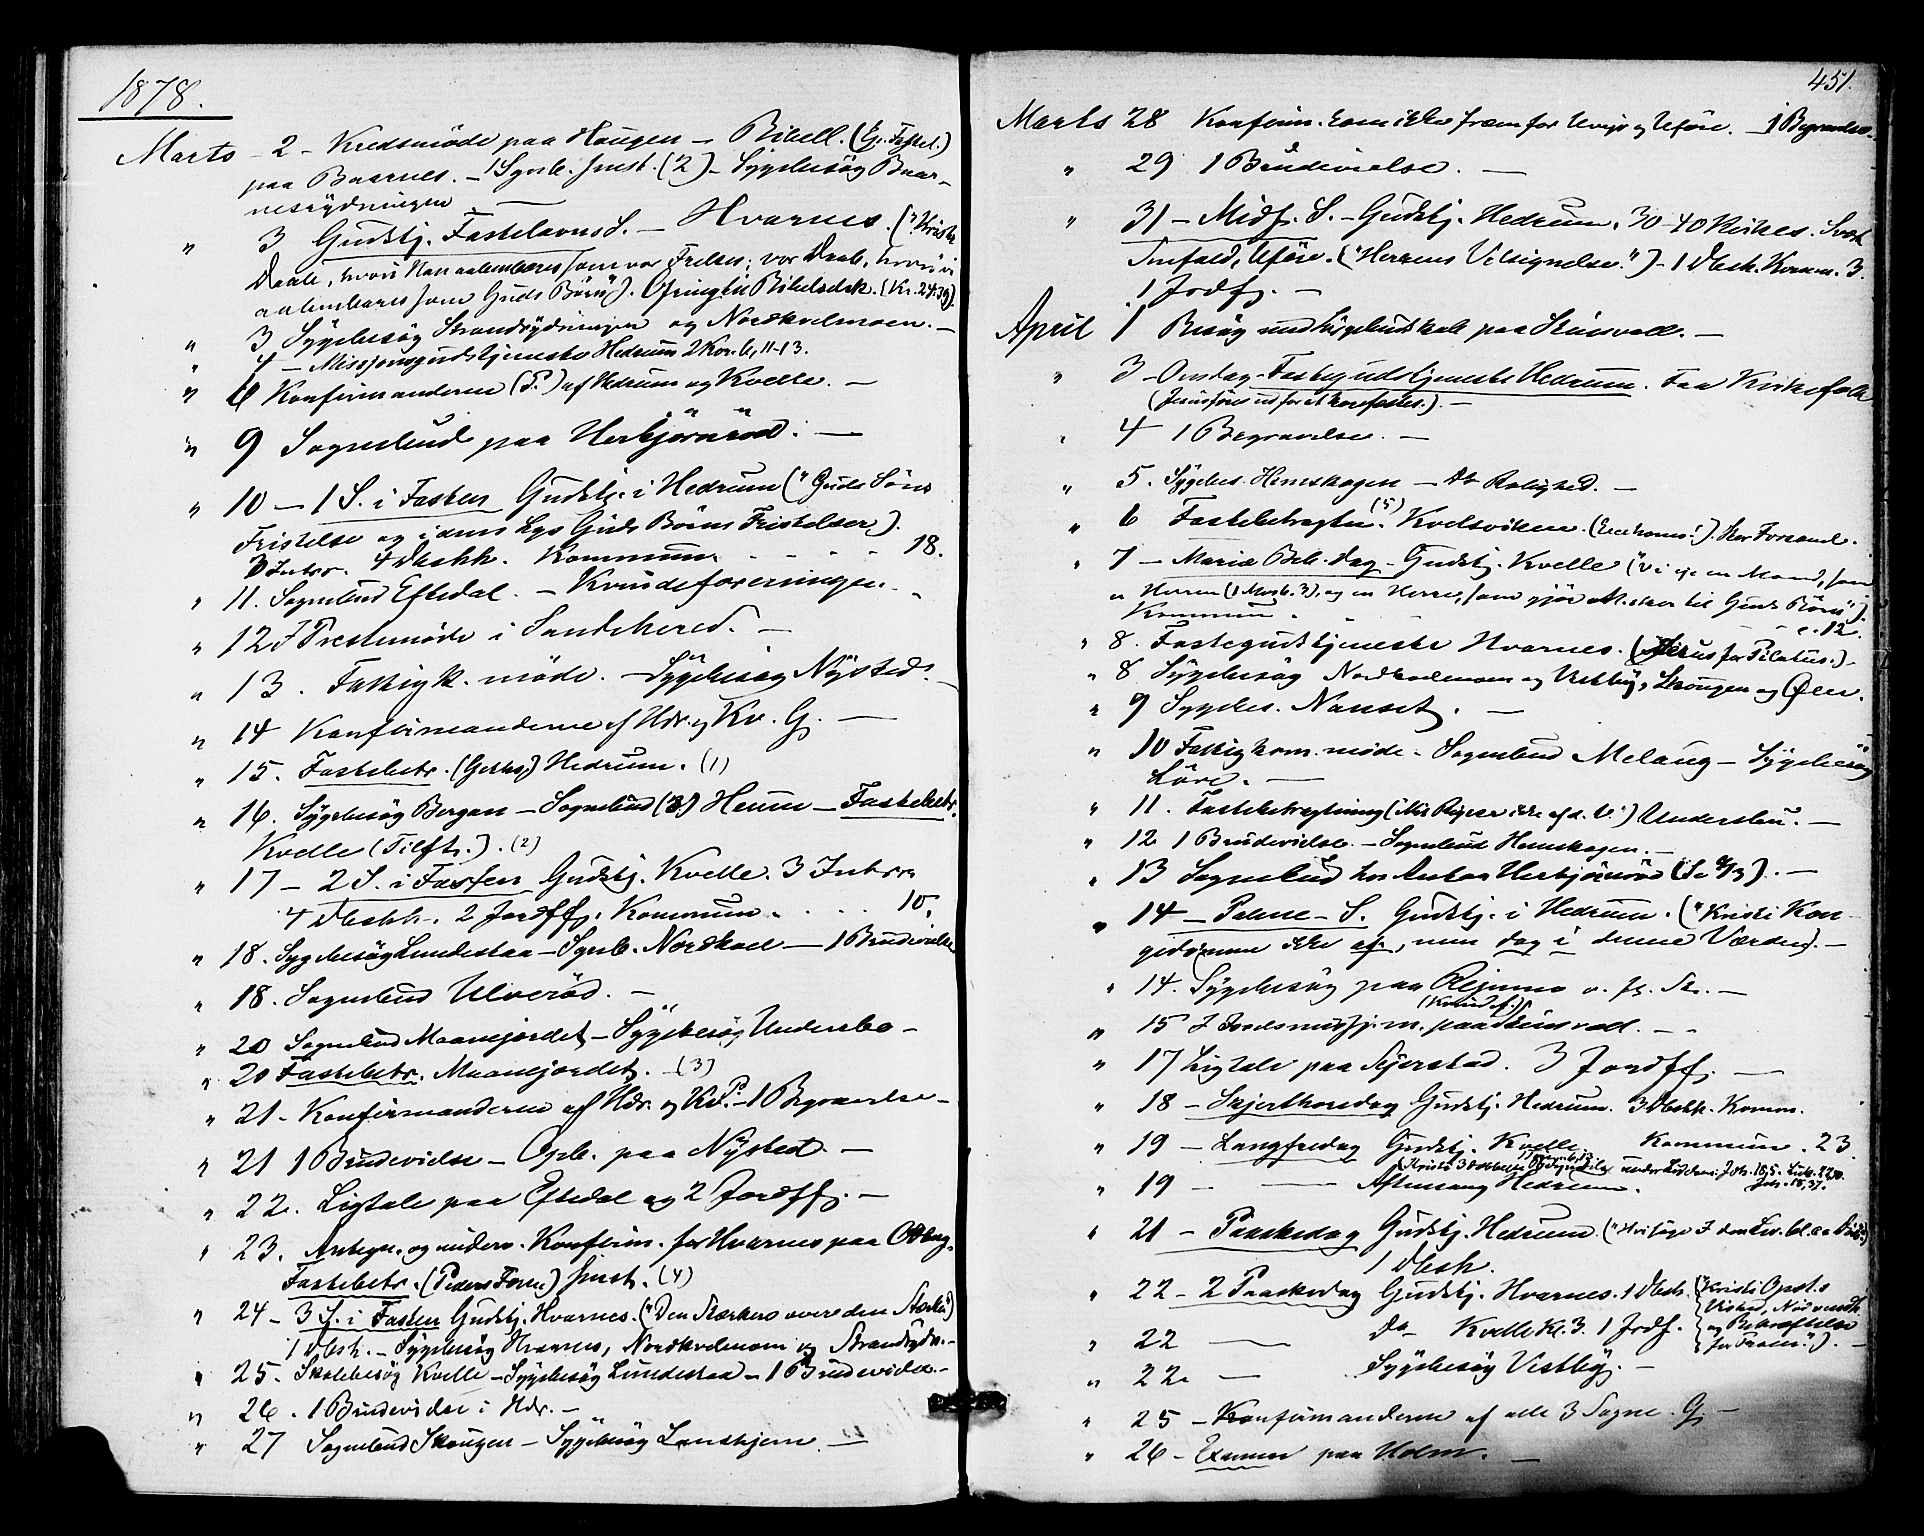 1878.
Marts 2 - Kredsmöde paa Haugen - Bibell.
paa Baarnes. - Synb. smst. (2) - Sygebesög Baar-
nesrydningen -
" 3 Gudstj. Fastelavns S. - Hvarnes. ("Kristi
Daab, hvori Han aabenbares som vor Frelser; vor Daab, hvori vi
aabenbares som Guds Börn"). Bibelselsk. (Kr. 24:39)
" 3 Sygebesög Strandrydningen og Nordkvelmoen. -
" 4 - Missionsgudstjeneste Hedrum 2 Kor. 6, 11-13.
" 6 Konfirmanderne (P.) af Hedrum og Kvelle. -
" 9 Sognebud paa Herbjörnröd. -
" 10 - 1 S. i Fasten Gudstj. i Hedrum ("Guds Söns
Fristelse og i dens Lys Guds Börns Fristelser").
3 Intro. 4 Dbshh. Kommun. . . . 18.
" 11. Sognebud Eftedal. - Kvindeforeningen. -
" 12 I Prestemöde i Sandehered. -
" 13. Fattigk. möde. - Sygebesög Nysted. -
" 14 Konfirmanderne af Hdr. og Kv. G. -
" 15. Fastebetr. (Geths.) Hedrum. (1)
" 16. Sygebesög Bergan - Sognebud (3) Heum - Fastebetr.
Kvelle (Tilft.). (2)
" 17 - 2 S. i Fasten Gudstj. Kvelle. 3 Intro
4 Dbshh. 2 Jordff. Kommun. . . . 10.
" 18. Sygebesög Lundestaa - Synb. Nordkvel - 1 Brudevielse
" 18. Sognebud Ulveröd. -
" 20 Sognebud Maanejordet - Sygebesög Undersbo -
" 20 Fastebetr. Maanejordet. - (3)
" 21 - Konfirmanderne af Hdr. og Kv. P. - 1 Begravelse -
" 21 1 Brudevielse - Opb. paa Nysted. -
" 22. Ligtale paa Eftedal og 2 Jordff. -
" 23. Antegn. og underv. Konfirm. for Hvarnes paa Odberg.
Fastebetr. (Peders Forn.) smst. (4)
" 24 - 3 S. i Fasten Gudstj. Hvarnes. ("Den Stærkere over den Stærke")
1 Dbsh. - Sygebesög Hvarnes, Nordkvelmoen og Strandrydn. -
" 25. Skolebesög Kvelle - Sygebesög Lundestaa - 1 Brudevielse -
" 26. 1 Brudevielse i Hdr. -
" 27 Sognebud Skougen - Sygebesög Lanskjem. -
451.
Marts 28 Konfirm. kom ikke frem for Uveir og Uföre. - 1 Begravelse.
" 29 1 Brudevielse. -
" 31 - Midf. S. - Gudstj. Hedrum. 30-40 Kirkes.
Uföre. ("Herrens Velsignelse.") - 1 Dbsh. Komm. 3.
1 Jordf. -
April 1 Besög med Sygebudskab paa Skinsvall. -
" 3 - Onsdag - Fastegudstjeneste Hedrum. Faa Kirkefolk
(Jesus föres ud for at korsfæstes.) -
" 4 1 Begravelse. -
" 5. Sygebes. Hemskogen - Rolighed. -
" 6 Fastebetragtn. (5) Kvelsviken. (Ecce homo!)
" 7 - Mariæ Beb. Dag - Gudstj. Kvelle ("Vi eje en Mand, som
er Herren (1 Moseb.), og en Herre, som gjör Msker til Guds Börn").
Kommun. - - c. 12.
" 8. Fastegudstjeneste Hvarnes. (Jesus for Pilatus.) -
" 8 Sygebesög Nordkvelmoen og Vestby, Skougen og Øen.
" 9 Sygebes. Nanset. -
" 10 Fattigkom. möde. Sognebud Melaug - Sygebesög
Löve. -
" 11. Fastebetragtning ("Mit Rige er ikke af d. V.") Undersbu. -
" 12 1 Brudevielse - Sognebud Hemskogen. -
" 13 Sognebud hos Anton Herbjörnröd (Se 9/3). -
" 14 - Palme-S. Gudstj. i Hedrum. ("Kristi Kon-
gedömme ikke af, men dog i denne Verden). -
" 14. Sygebesög paa
(Kvindef.)
" 15 I Israelsmissj. m. paa Skinsvall. -
" 17 Ligtale paa Sjerstad. 3 Jordff. -
" 18 - Skjærthorsdag Gudstj. Hedrum. 3 Dbshh. Komm.
" 19 - Langfredag Gudstj. Kvelle. Kommun. 23.
" 19 - Aftensang Hedrum.
" 21 - Paaskedag Gudstj. Hedrum.
1 Dbsh.
" 22 - 2 Paaskedag Gudstj. Hvarnes. 1 Dbsh. ("Kristi Opst.s
Vished, Nödvendh.
" 22 - Do - Kvelle Kl. 3. 1 Jrdf. og Bekræftelse
for Troen."). -
" 22 - Sygebesög Vestby. -
" 25 - Konfirmanderne af alle 3 Sogne. G. -
" 26 - Examen paa Holm. -